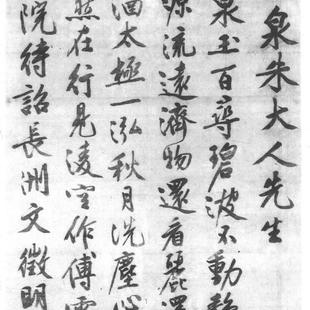 泉朱大人先生
泉玉百尋碧波不動
源流遠濟物還看
涵太極一泓秋月洗塵心
然在行見凌空作傅
院待詔長洲文徵明